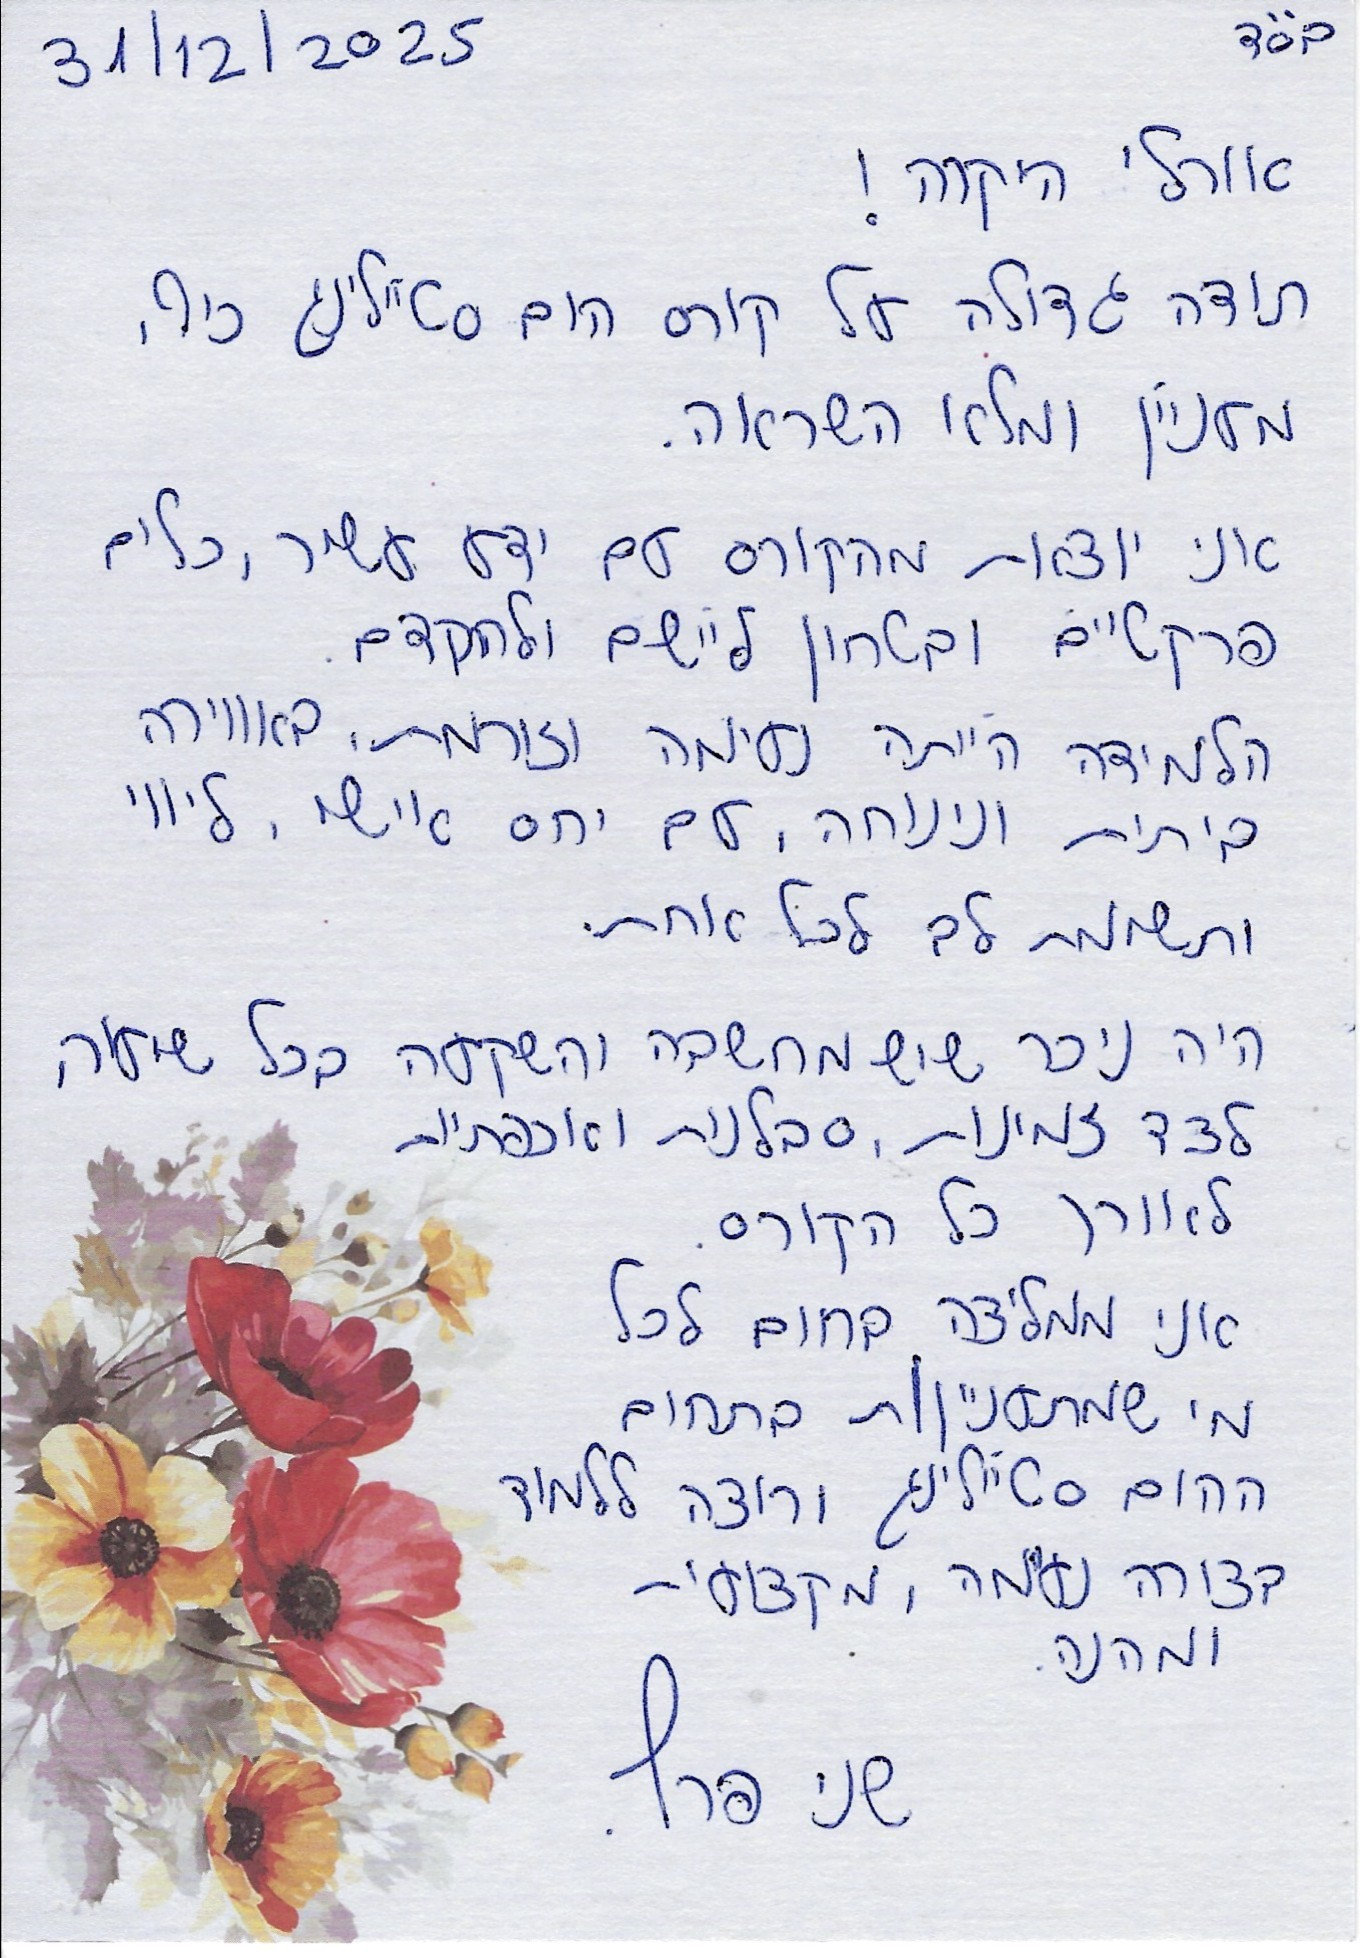 בס"ד
31/12/2025
אורלי היקרה!
תודה גדולה על קורס הום סטיילינג כיפי,
מעניין ומלא השראה.
אני יוצאת מהקורס עם ידע עשיר, כלים
פרקטיים ובטחון ליישם ולהתקדם.
הלמידה הייתה נעימה וזורמת, באווירה
ביתית ונינוחה, עם יחס אישי, ליווי
ותשומת לב לכל אחת.
היה ניכר שיש מחשבה והשקעה בכל שיעור,
לצד זמינות, סבלנות ואכפתיות
לאורך כל הקורס.
אני ממליצה בחום לכל
מי שמתעניין/ת בתחום
ההום סטיילינג ורוצה ללמוד
בצורה נעימה, מקצועית
ומהנה.
שני